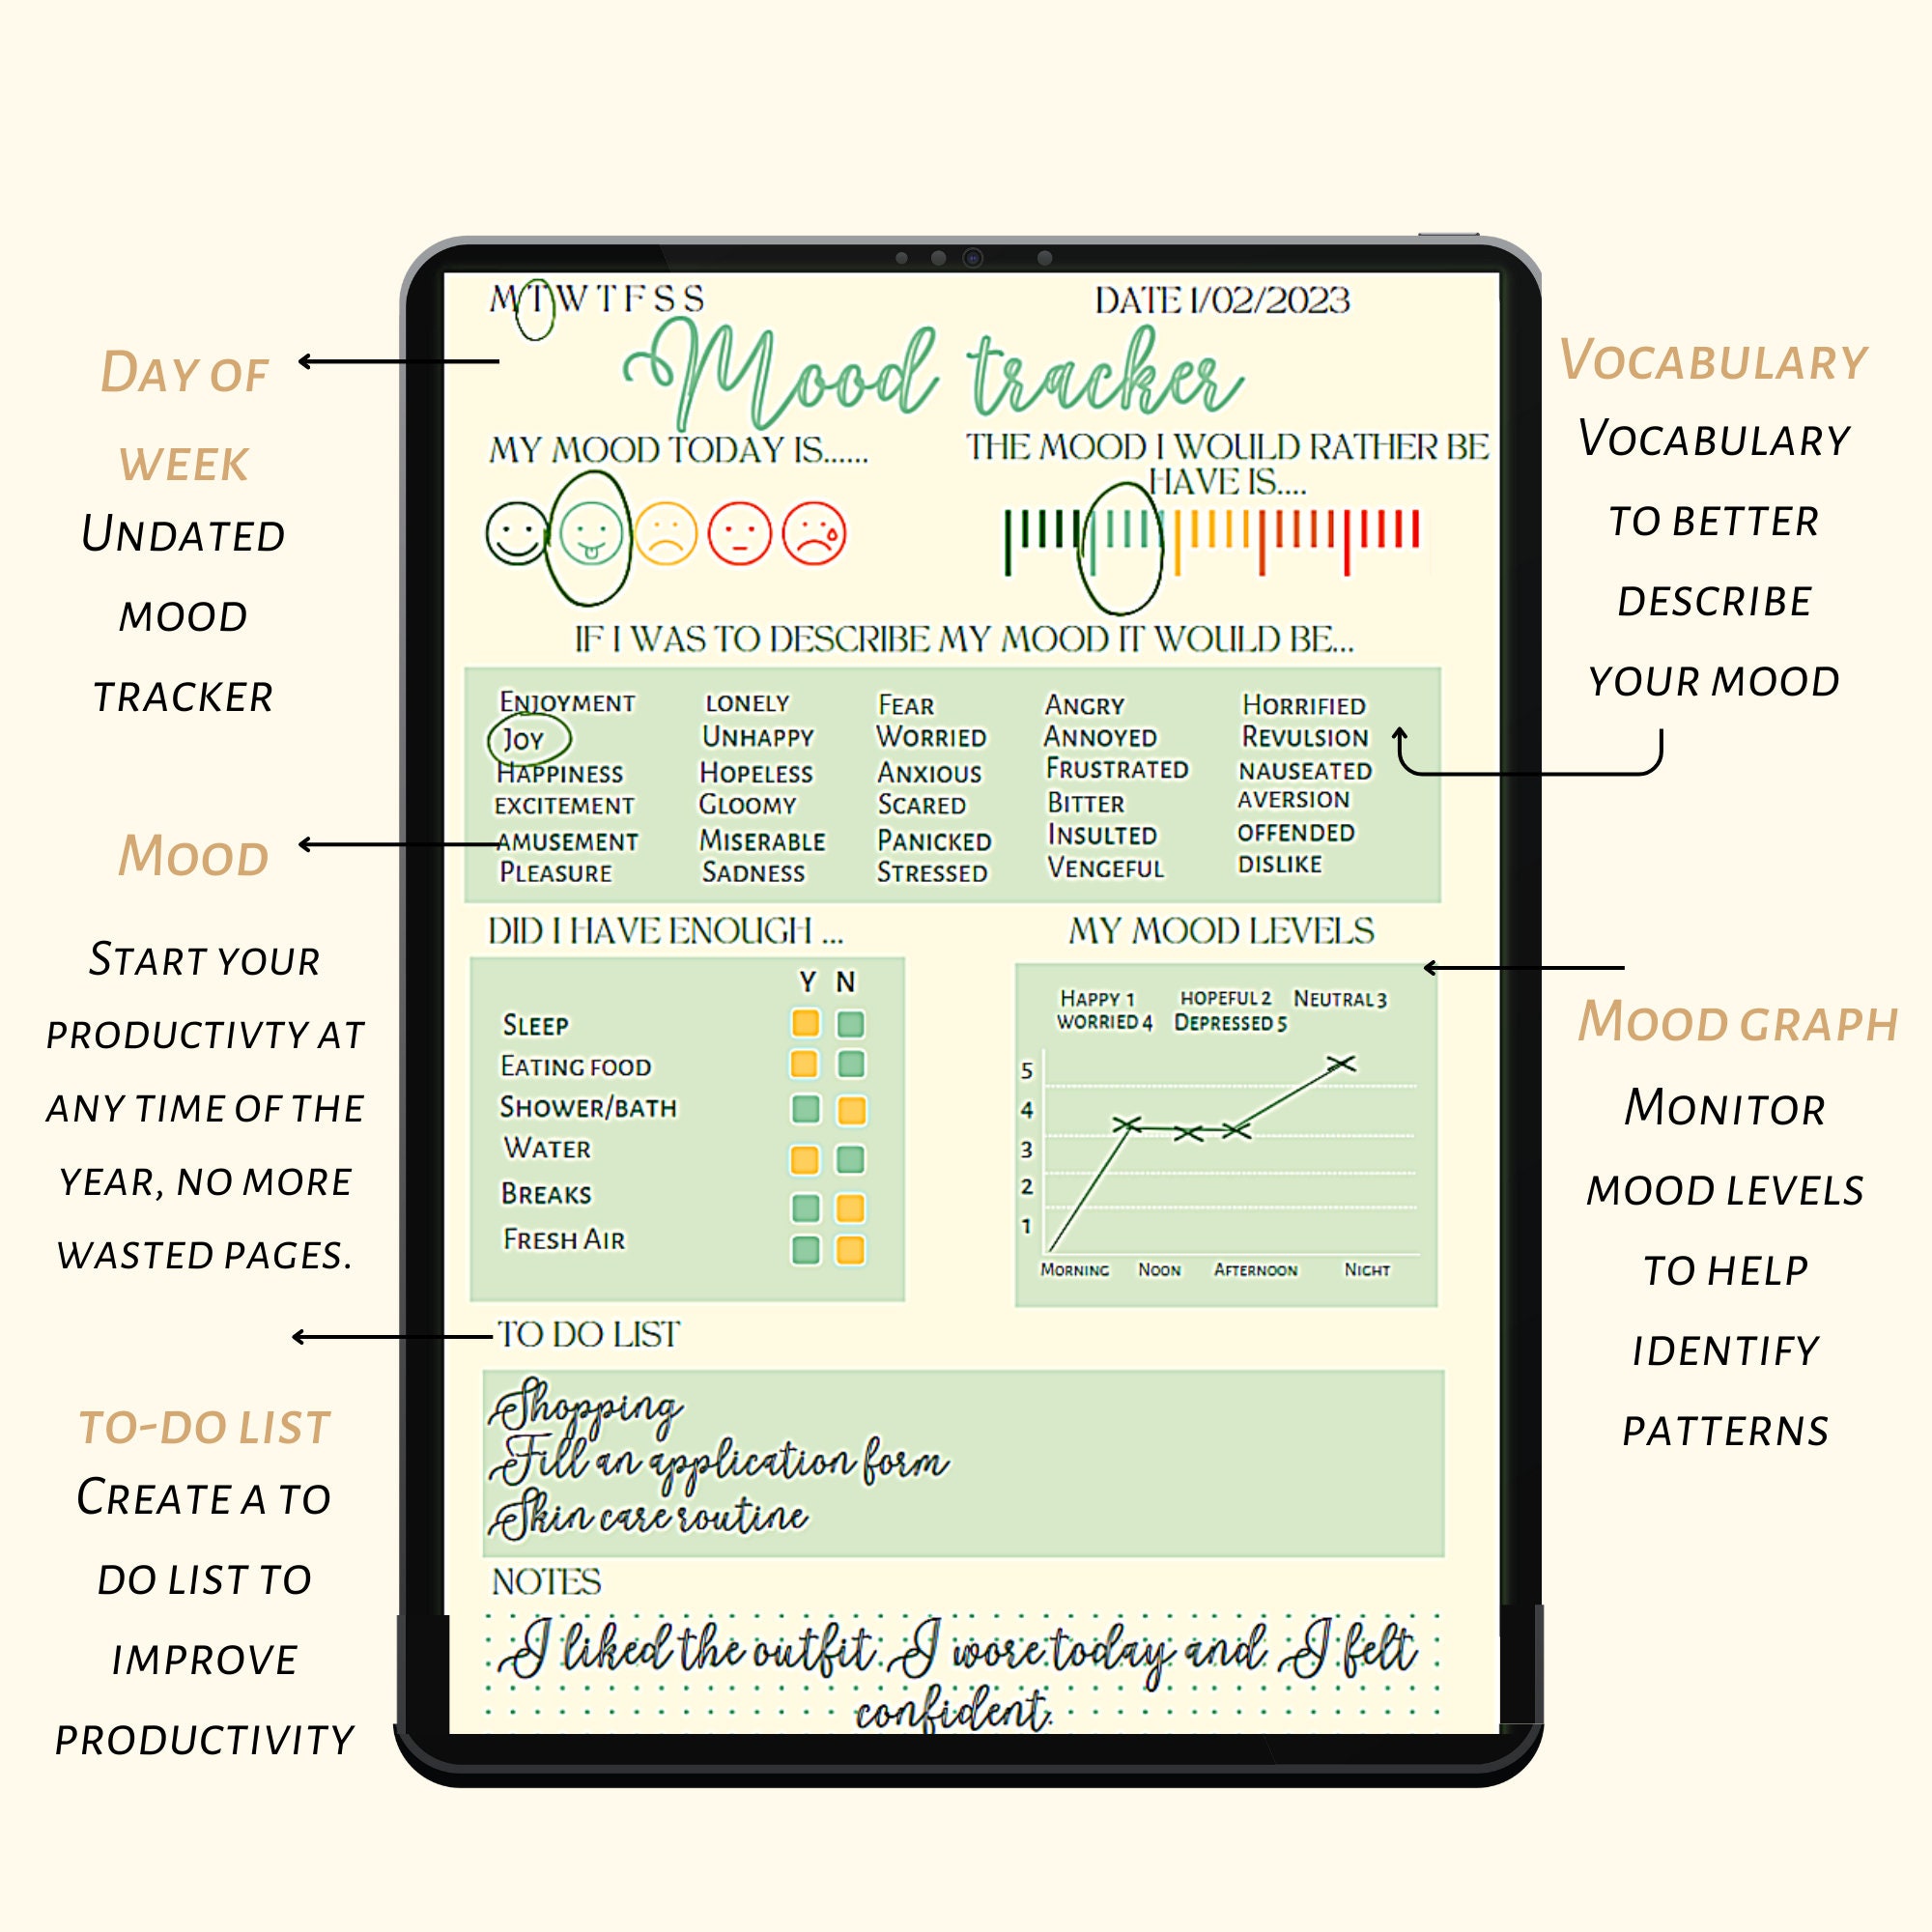 M T W T F S S
DATE 1/02/2023
Mood tracker
MY MOOD TODAY IS......
THE MOOD I WOULD RATHER BE
HAVE IS....
IF I WAS TO DESCRIBE MY MOOD IT WOULD BE...
ENJOYMENT LONELY FEAR ANGRY HORRIFIED
JOY UNHAPPY WORRIED ANNOYED REVULSION
HAPPINESS HOPELESS ANXIOUS FRUSTRATED NAUSEATED
EXCITEMENT GLOOMY SCARED BITTER AVERSION
AMUSEMENT MISERABLE PANICKED INSULTED OFFENDED
PLEASURE SADNESS STRESSED VENGEFUL DISLIKE
DID I HAVE ENOUGH ...
Y N
SLEEP
EATING FOOD
SHOWER/BATH
WATER
BREAKS
FRESH AIR
MY MOOD LEVELS
HAPPY 1 HOPEFUL 2 NEUTRAL 3
WORRIED 4 DEPRESSED 5
5
4
3
2
1
MORNING NOON AFTERNOON NIGHT
TO DO LIST
Shopping
Fill an application form
Skin care routine
NOTES
I liked the outfit I wore today and I felt
confident.
DAY OF
WEEK
UNDATED
MOOD
TRACKER
MOOD
START YOUR
PRODUCTIVTY AT
ANY TIME OF THE
YEAR, NO MORE
WASTED PAGES.
TO-DO LIST
CREATE A TO
DO LIST TO
IMPROVE
PRODUCTIVITY
VOCABULARY
VOCABULARY
TO BETTER
DESCRIBE
YOUR MOOD
MOOD GRAPH
MONITOR
MOOD LEVELS
TO HELP
IDENTIFY
PATTERNS